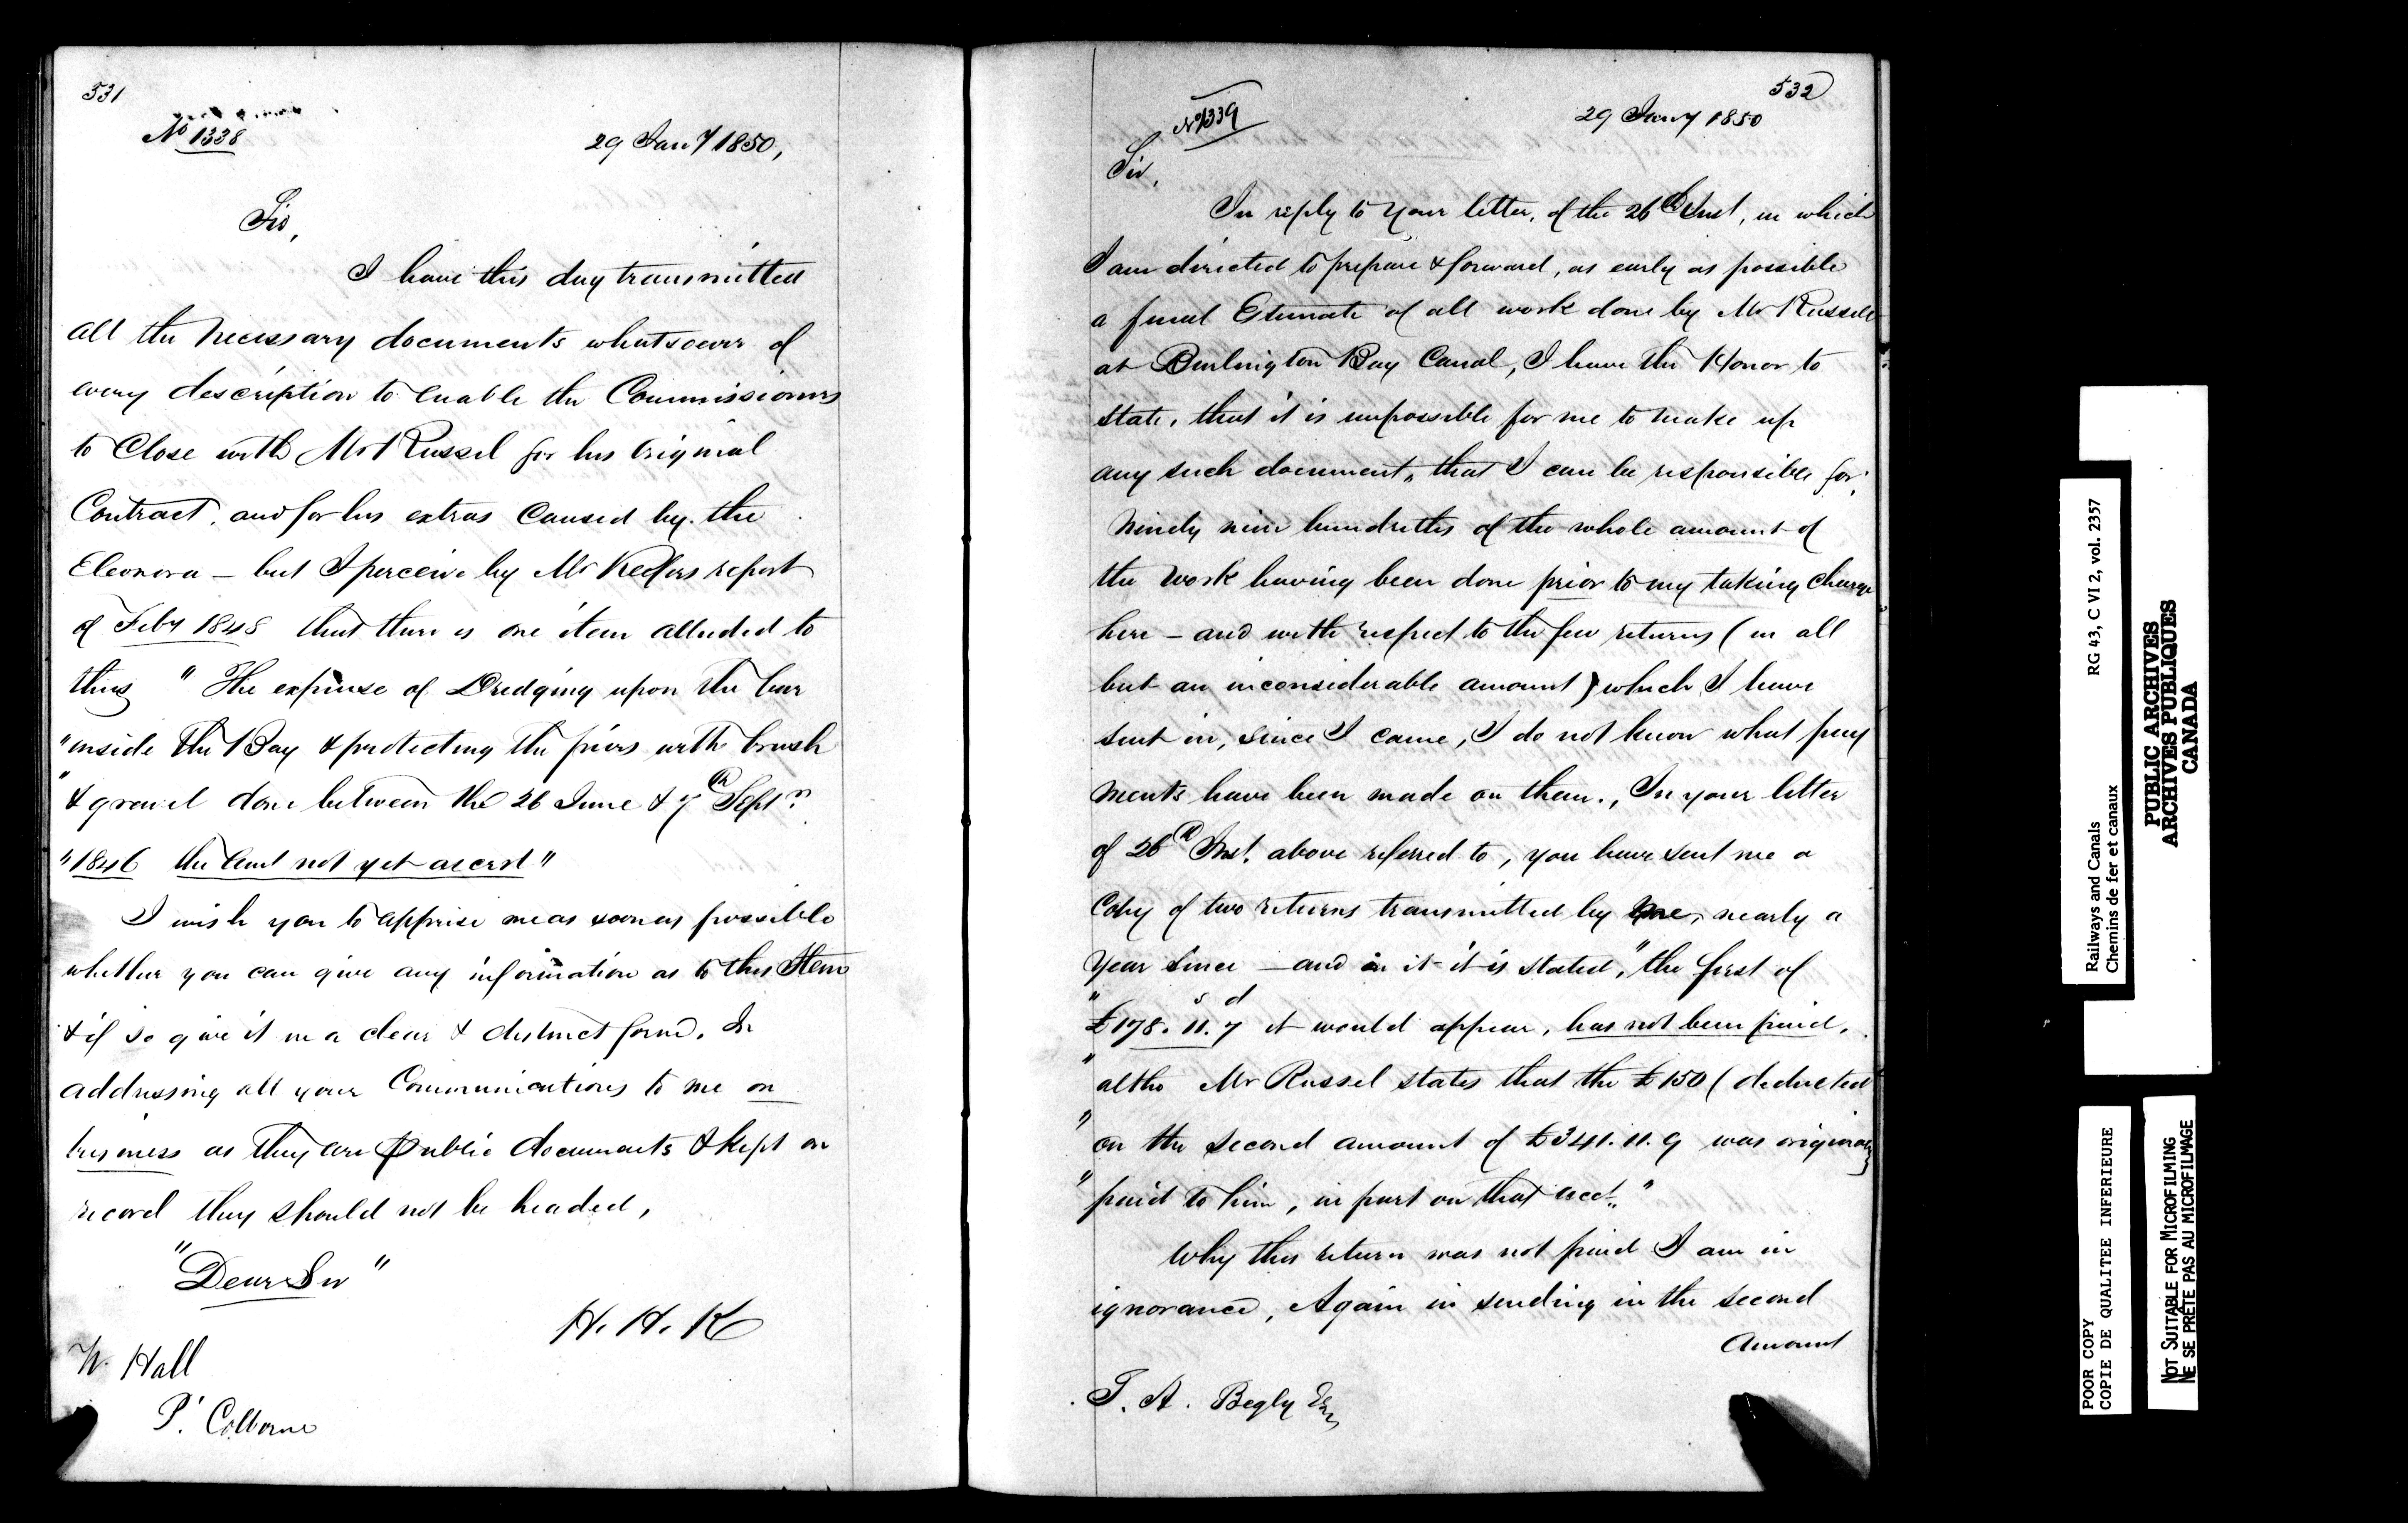 531
No 1338
29 Jany 1850,
Sir,
I have this day transmitted
all the necessary documents whatsoever of
every description to enable the Commissioners
to Close with Mr Russel for his Original
Contract, and for his extras Caused by the
Eleonora — but I perceive by Mr Keefers report
of Feby 1848 that there is one item alluded to
thus "The expense of Dredging upon the bar
"inside the Bay & protecting the piers with brush
"& gravel done between the 26 June & 7th Septr
"1846 the amt not yet ascert"
I wish you to apprise me as soon as possible
whether you can give any information as to this Item
& if so give it in a clear & distinct form. In
addressing all your Communications to me on
business as they are public documents & kept on
record they should not be headed,
"Dear Sir"
H. H. K
W. Hall
P. Colborne
532
No 1339
29 Jany 1850
Sir,
In reply to your letter, of the 26th Inst, in which
I am directed to prepare & forward, as early as possible
a final Estimate of all work done by Mr Russell
at Burlington Bay Canal, I have the Honor to
state, that it is impossible for me to make up
any such document, that I can be responsible for,
ninety nine hundredths of the whole amount of
the work having been done prior to my taking charge
here — and with respect to the few returns (in all
but an inconsiderable amount) which I have
sent in, since I came, I do not know what pay
ments have been made on them., In your letter
of 26th Inst. above referred to, you have sent me a
Copy of two returns transmitted by me, nearly a
year since — and in it it is stated, "the first of
"£178. 11.s 7d it would appear, has not been paid,
"altho Mr Russel states that the £150 (deducted
"on the second amount of £341. 11. 9 was originally
"paid to him, in part on that acct."
Why this return was not paid I am in
ignorance, Again in sending in the second
Amount
T. A. Begly Esq
Railways and Canals RG 43, C VI 2, vol. 2357
Chemins de fer et canaux
PUBLIC ARCHIVES
ARCHIVES PUBLIQUES
CANADA
POOR COPY
COPIE DE QUALITEE INFERIEURE
NOT SUITABLE FOR MICROFILMING
NE SE PRÊTE PAS AU MICROFILMAGE